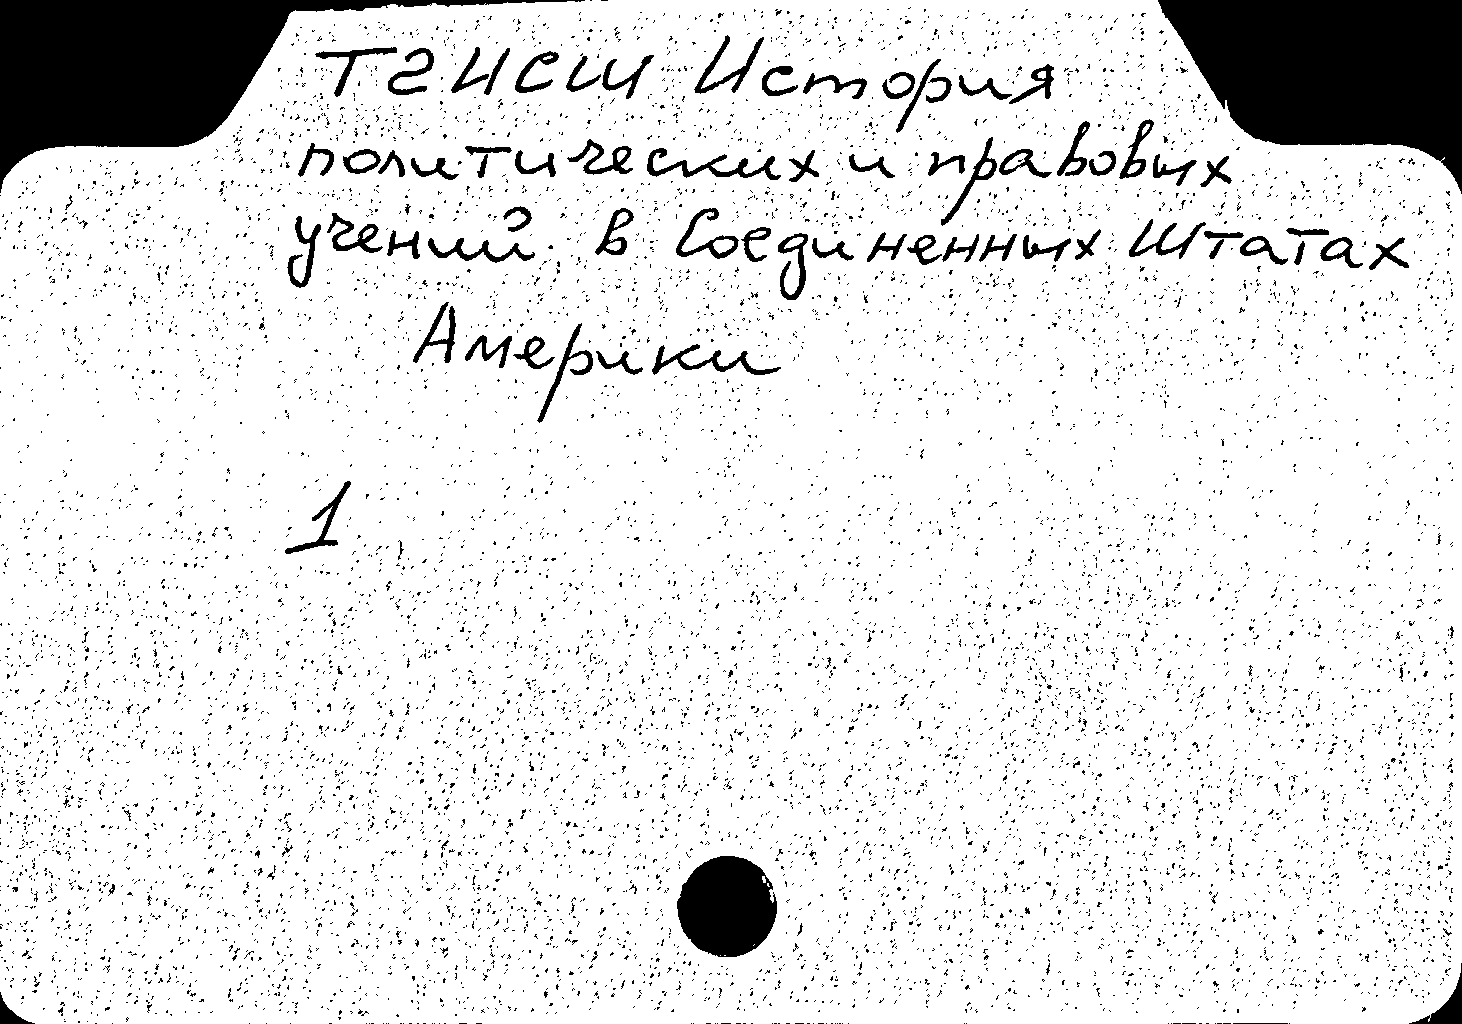 Т2ИСШ История
политических и правовых
учений в Соединенных Штатах
Америки
1